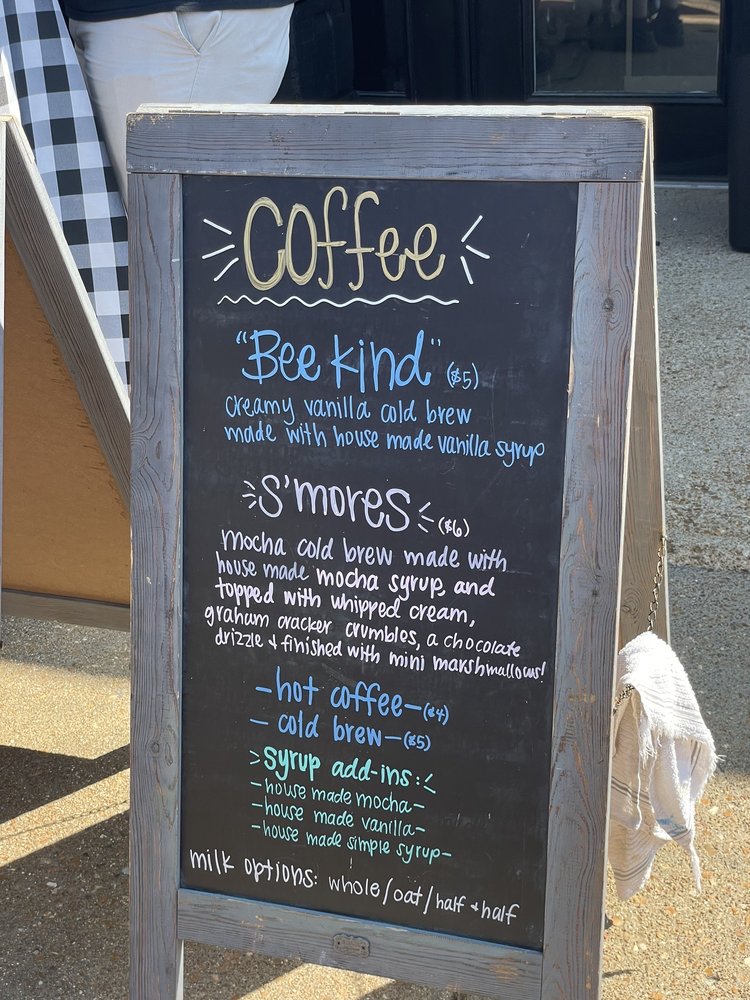 Coffee
"Bee kind" ($5)
creamy vanilla cold brew
made with house made vanilla syrup
S'mores ($6)
mocha cold brew made with
house made mocha syrup, and
topped with whipped cream,
graham cracker crumbles, a chocolate
drizzle & finished with mini marshmallows!
-hot coffee-($4)
- cold brew-($5)
syrup add-ins:
-house made mocha-
-house made vanilla-
-house made simple syrup-
milk options: whole/oat/half & half